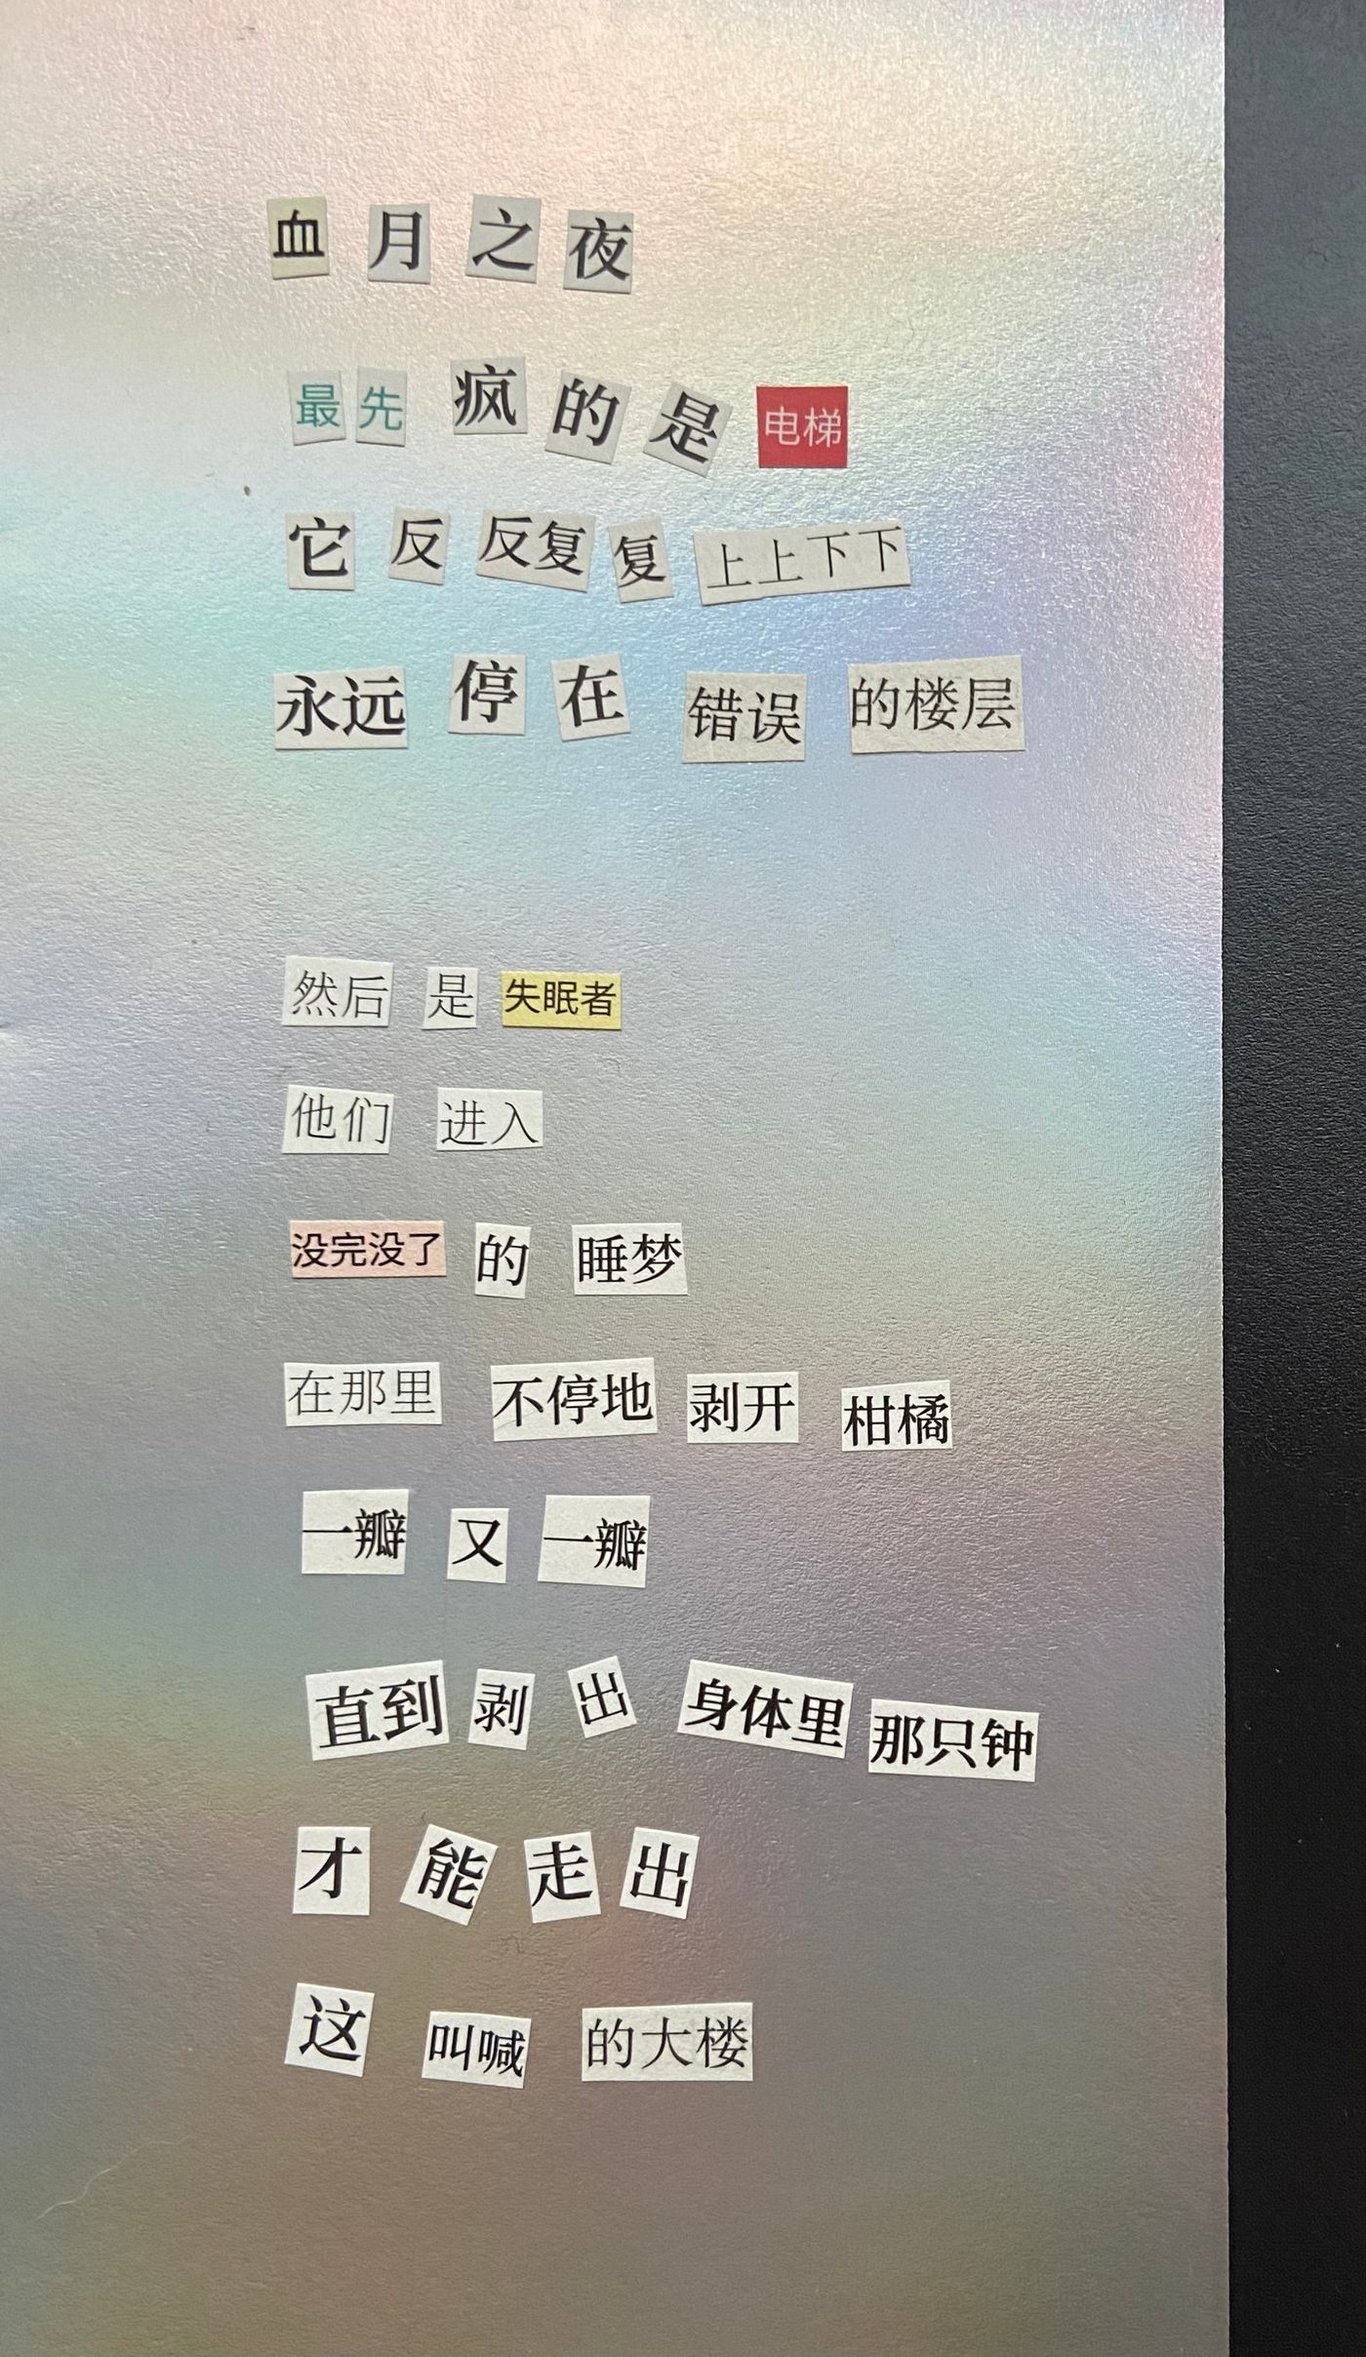 血月之夜
最先疯的是电梯
它反反复复上上下下
永远停在错误的楼层
然后是失眠者
他们进入
没完没了的睡梦
在那里不停地剥开柑橘
一瓣又一瓣
直到剥出身体里那只钟
才能走出
这叫喊的大楼